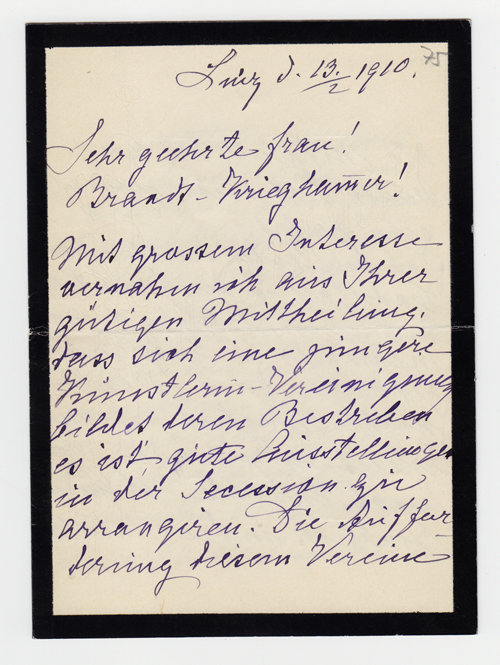 Linz d. 13./2 1910.
75
Sehr geehrte Frau!
Brandt-Krieghammer!
Mit grossem Interesse
vernahm ich aus Ihrer
gütigen Mittheilung,
dass sich eine jüngere
Künstlerin-Vereinigung
bildet deren Bestreben
es ist gute Ausstellungen
in der Secession zu
arrangiren. Die Auffor-
derung diesem Vereine